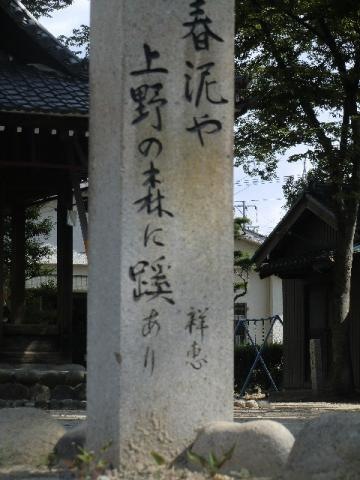 春泥や
上野の森に蹊あり
祥恵